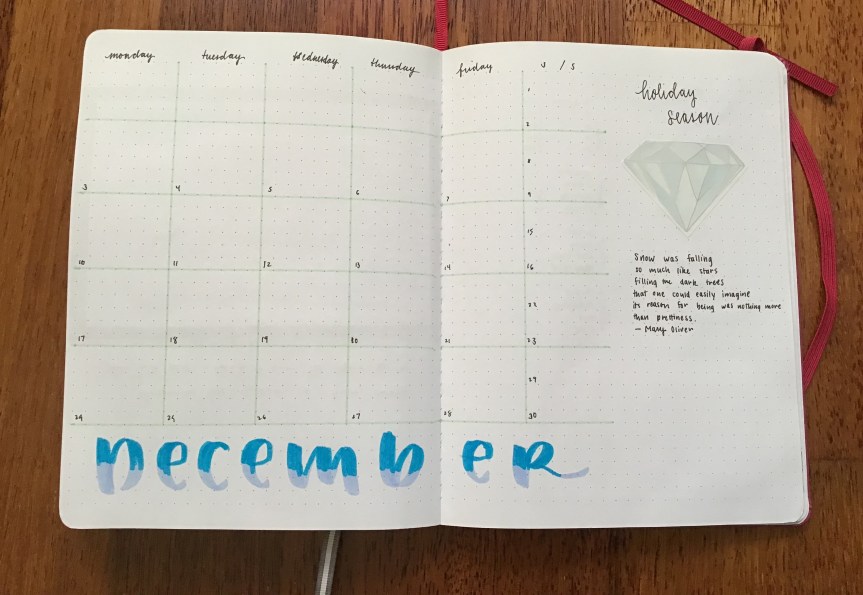 monday tuesday wednesday thursday friday s / s
holiday
season
1
2
8
3 4 5 6 7 9
15
10 11 12 13 14 16
22
17 18 19 20 21 23
29
24 25 26 27 28 30
Snow was falling
so much like stars
filling the dark trees
that one could easily imagine
its reason for being was nothing more
than prettiness.
— Mary Oliver
December